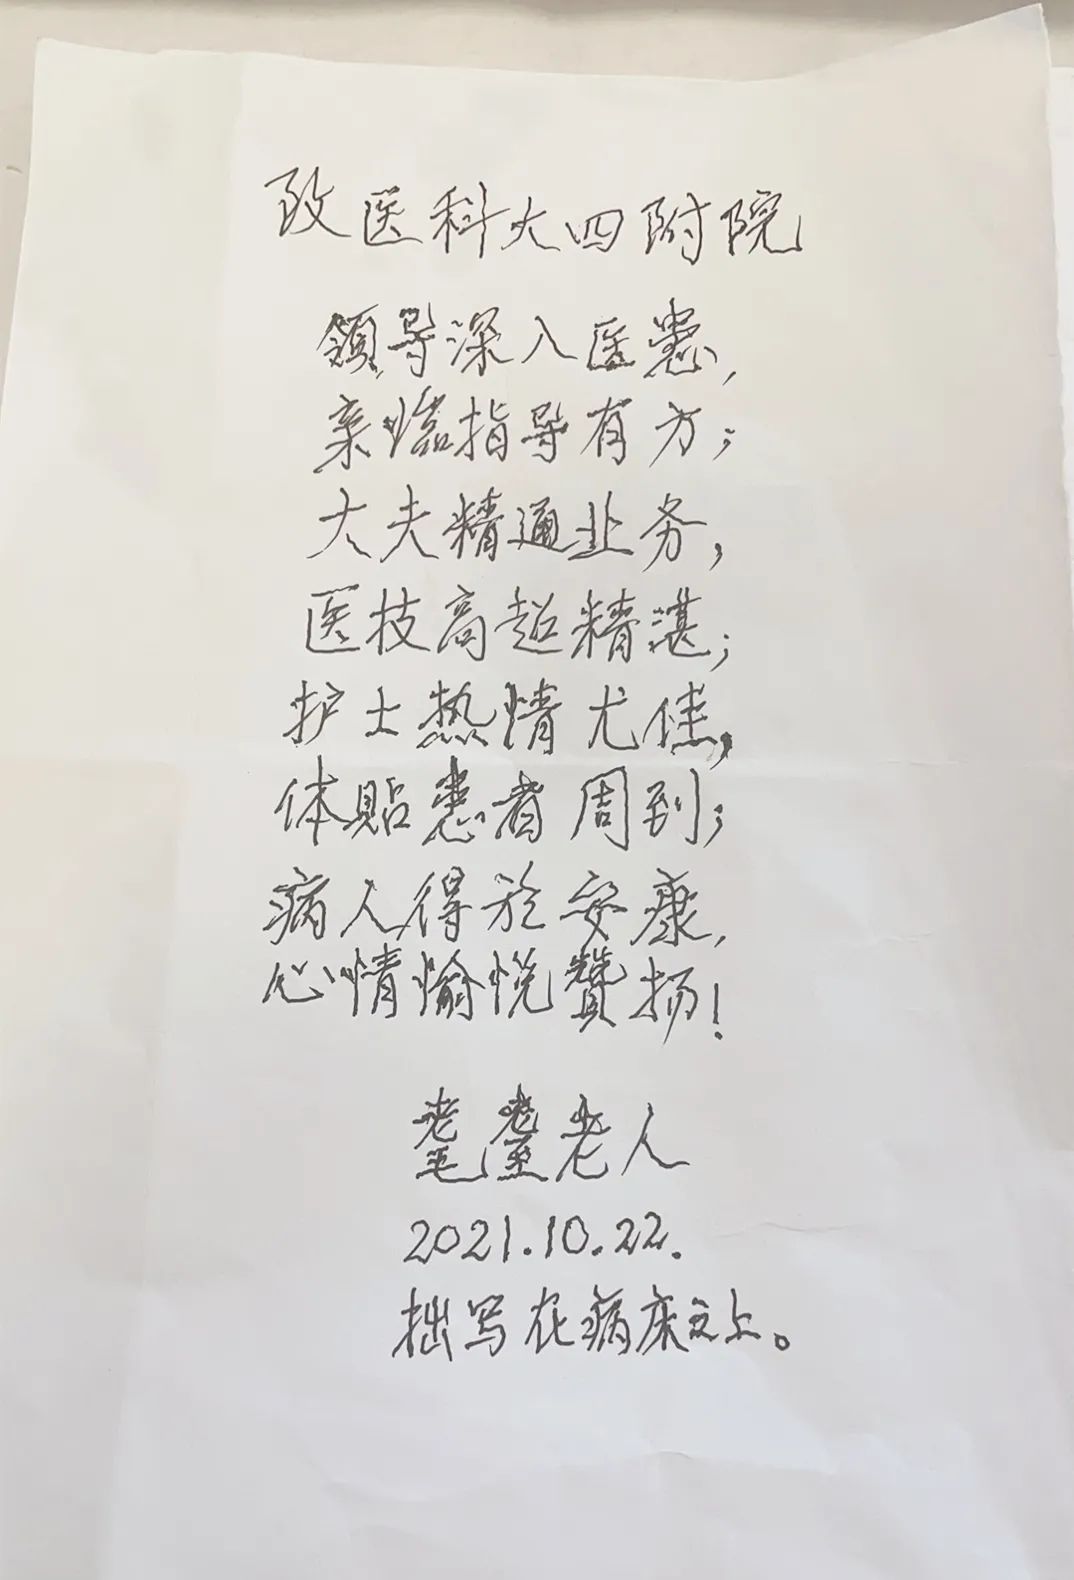 致医科大四附院
領导深入医患,
亲临指导有方;
大夫精通业务,
医技高超精湛;
护士热情尤佳,
体貼患者周到;
病人得於安康,
心情愉悦贊扬!
耄耋老人
2021.10.22.
拙写在病床之上。